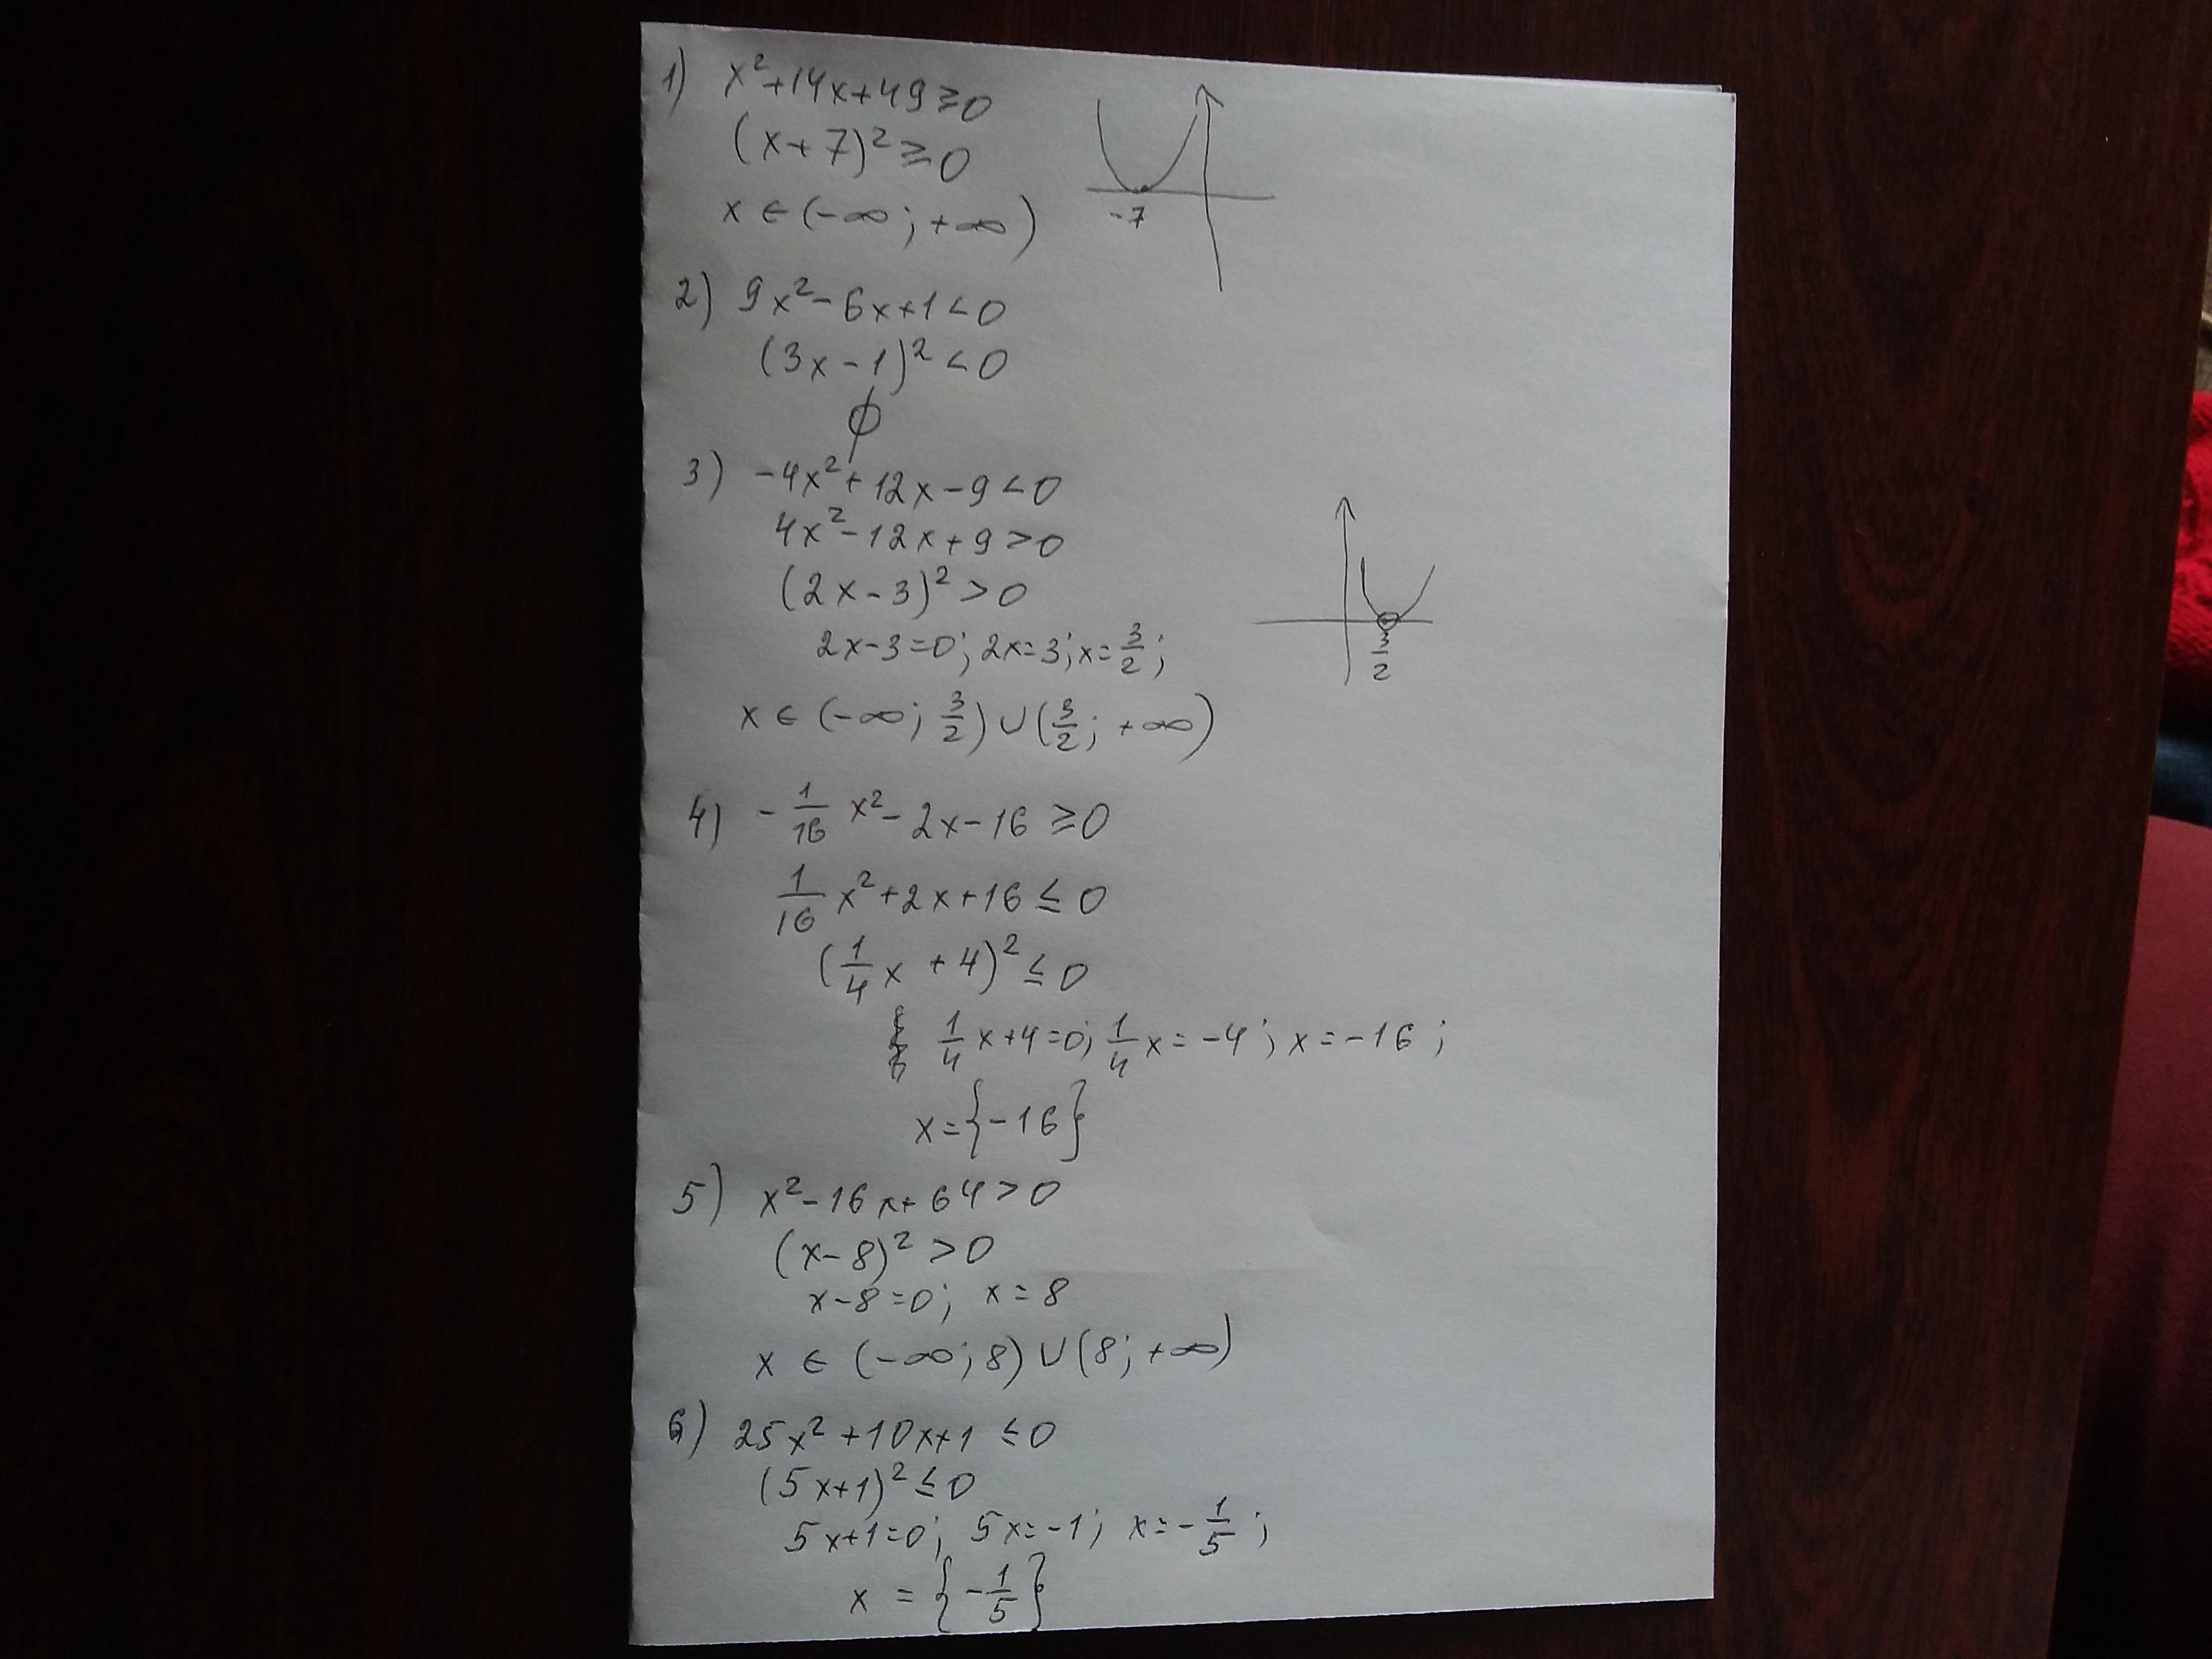 1) x²+14x+49≥0
(x+7)²≥0
x∈(-∞; +∞)
-7
2) 9x²-6x+1<0
(3x-1)²<0
∅
3) -4x²+12x-9<0
4x²-12x+9>0
(2x-3)²>0
2x-3=0; 2x=3; x=3/2;
3/2
x∈(-∞; 3/2)∪(3/2; +∞)
4) -1/16 x²-2x-16≥0
1/16 x²+2x+16≤0
(1/4 x+4)²≤0
1/4 x+4=0; 1/4 x=-4; x=-16;
x={-16}
5) x²-16x+64>0
(x-8)²>0
x-8=0; x=8
x∈(-∞; 8)∪(8; +∞)
6) 25x²+10x+1≤0
(5x+1)²≤0
5x+1=0; 5x=-1; x=-1/5;
x={-1/5}